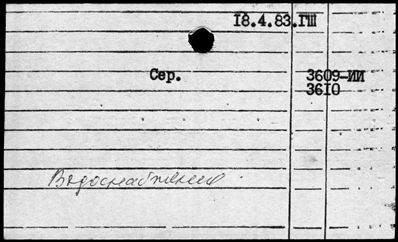 18.4.83.ГШ
Сер. 3609-ИИ
3610
Водоснабжение.